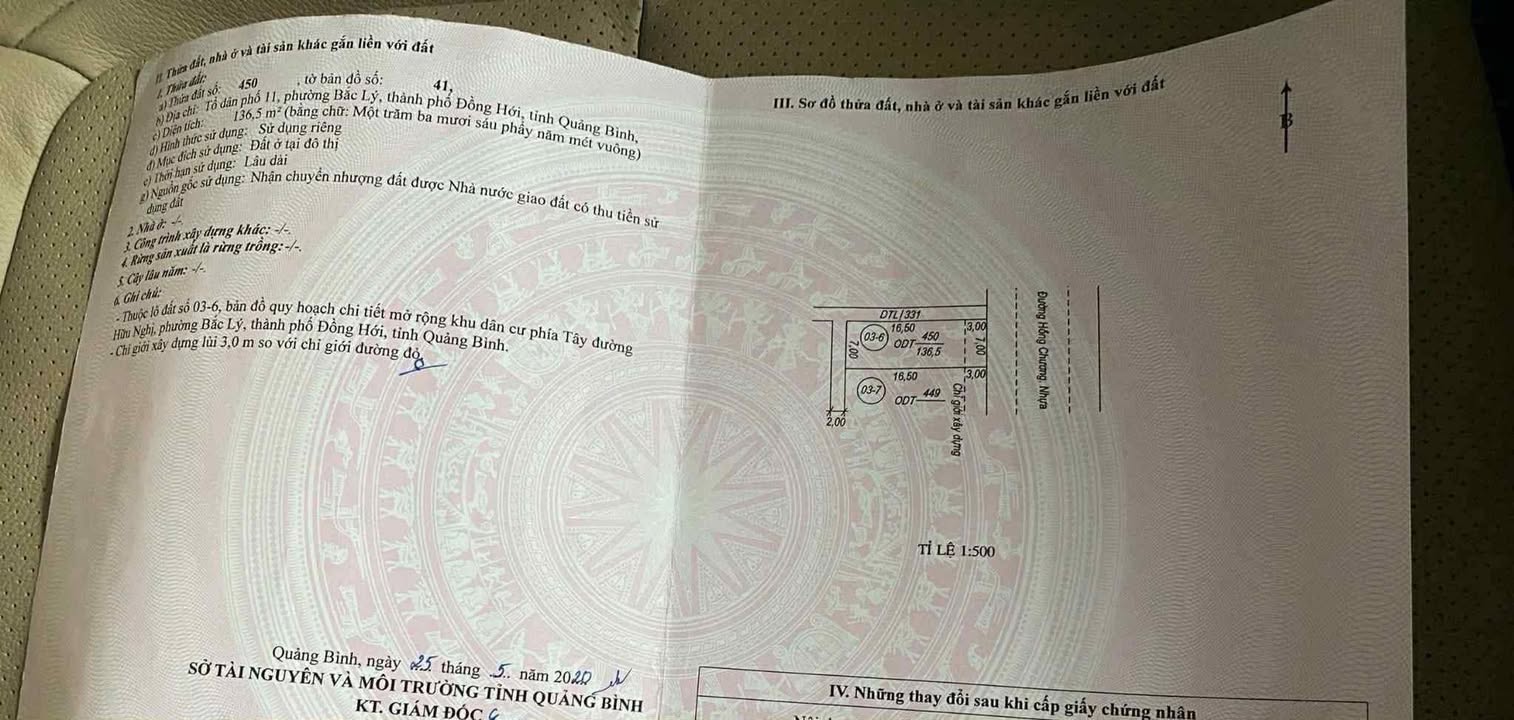 II. Thửa đất, nhà ở và tài sản khác gắn liền với đất
1. Thửa đất:
a) Thửa đất số: 450 , tờ bản đồ số: 41,
b) Địa chỉ: Tổ dân phố 11, phường Bắc Lý, thành phố Đồng Hới, tỉnh Quảng Bình,
c) Diện tích: 136,5 m² (bằng chữ: Một trăm ba mươi sáu phẩy năm mét vuông)
d) Hình thức sử dụng: Sử dụng riêng
đ) Mục đích sử dụng: Đất ở tại đô thị
e) Thời hạn sử dụng: Lâu dài
g) Nguồn gốc sử dụng: Nhận chuyển nhượng đất được Nhà nước giao đất có thu tiền sử
dụng đất
2. Nhà ở: -/-.
3. Công trình xây dựng khác: -/-.
4. Rừng sản xuất là rừng trồng: -/-.
5. Cây lâu năm: -/-.
6. Ghi chú:
- Thuộc lô đất số 03-6, bản đồ quy hoạch chi tiết mở rộng khu dân cư phía Tây đường
Hữu Nghị, phường Bắc Lý, thành phố Đồng Hới, tỉnh Quảng Bình.
- Chỉ giới xây dựng lùi 3,0 m so với chỉ giới đường đỏ
Quảng Bình, ngày 25 tháng 5 năm 2020
SỞ TÀI NGUYÊN VÀ MÔI TRƯỜNG TỈNH QUẢNG BÌNH
KT. GIÁM ĐỐC
III. Sơ đồ thửa đất, nhà ở và tài sản khác gắn liền với đất
B
DTL/331
16,50
3,00
03-6
ODT 450
136,5
7,00
7,00
16,50
3,00
03-7
ODT 449
2,00
Chỉ giới xây dựng
Đường Hồng Chương, Nhựa
TỈ LỆ 1:500
IV. Những thay đổi sau khi cấp giấy chứng nhận